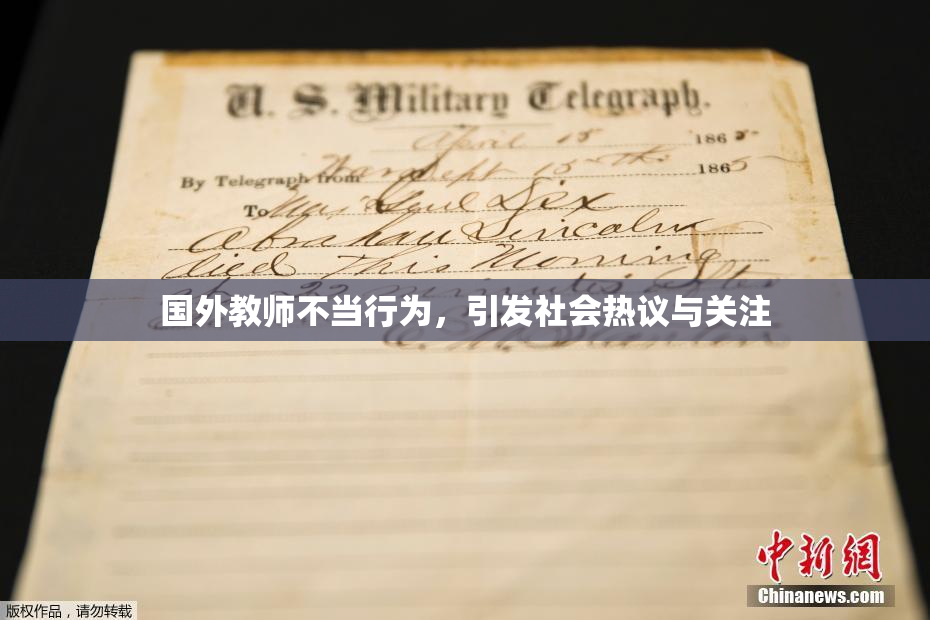 U. S. Military Telegraph.
April 15 1865
By Telegraph from War Dept 15th 1865
To Maj Genl Dix
Abraham Lincoln
died This Morning
at 22 minutes after
国外教师不当行为，引发社会热议与关注
中新网
Chinanews.com
版权作品，请勿转载